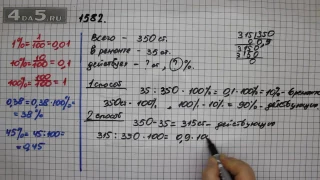 4DS.RU
1582.
1% = 1/100 = 0,01
10% = 10/100 = 0,1
100% = 100/100 = 1
0,38 = 0,38·100% = 38%
45% = 45:100 = 0,45
Всего – 350 ст.
В ремонте – 35 ст.
действующ – ? ст, ? %
315|350
0 0,9
3150
3150
0
1 способ
35 : 350 · 100% = 0,1·100% = 10% – в ремонте
100% - 10% = 90% – действующие
2 способ
350-35 = 315 ст – действующие
315 : 350 · 100 = 0,9·10